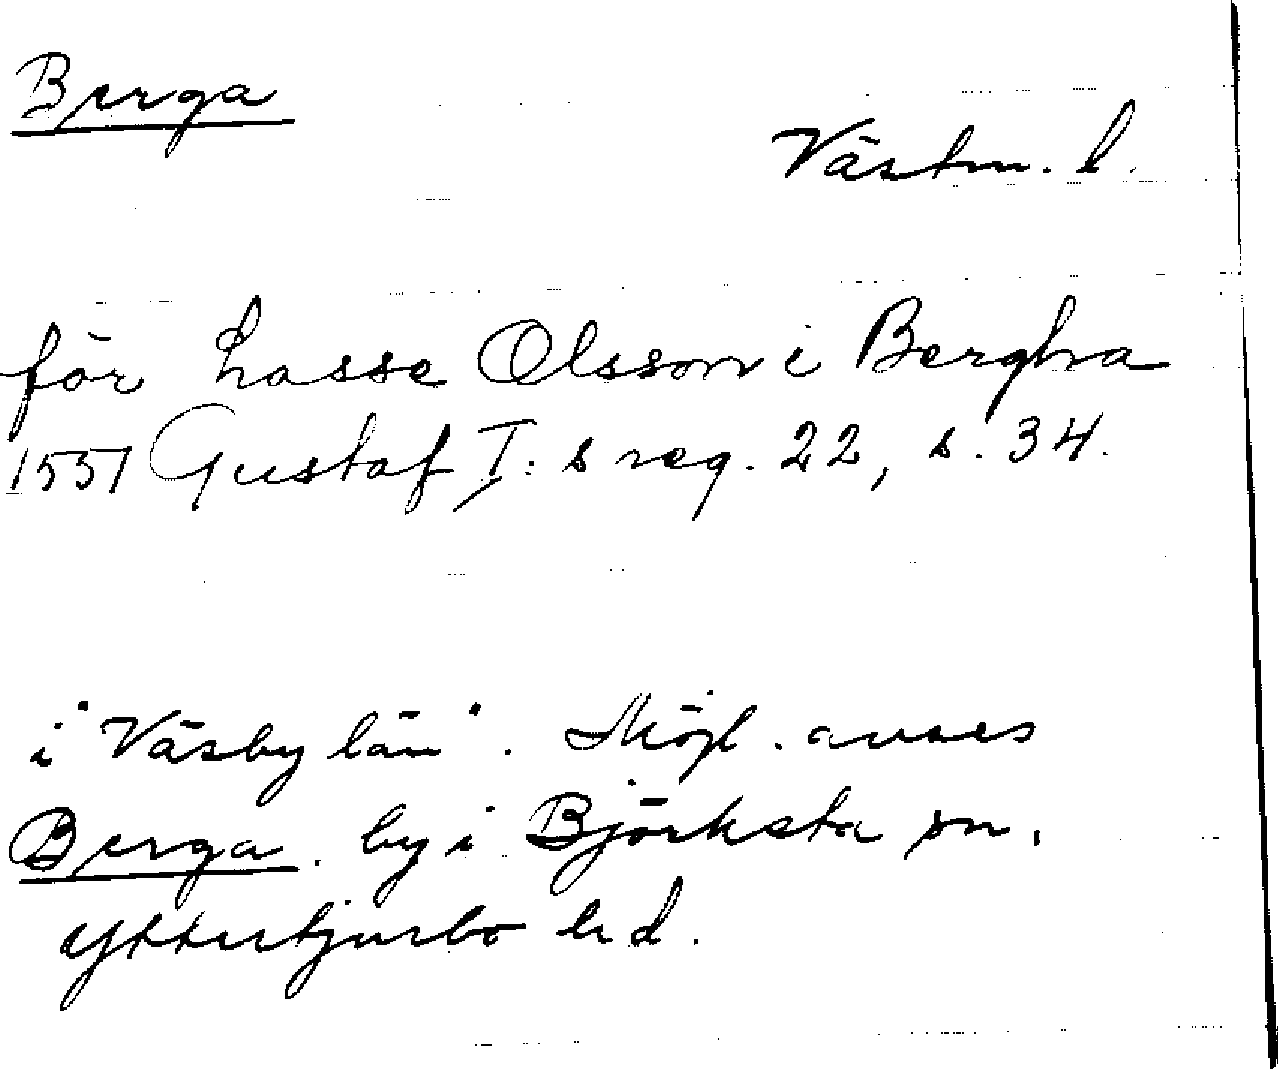 Berga
Västm. l.
för Lasse Olsson i Bergha
1551 Gustaf I:s reg. 22, s. 34.
i "Väsby län". Möjl. avses
Berga by i Björksta sn,
Yttertjurbo hd.